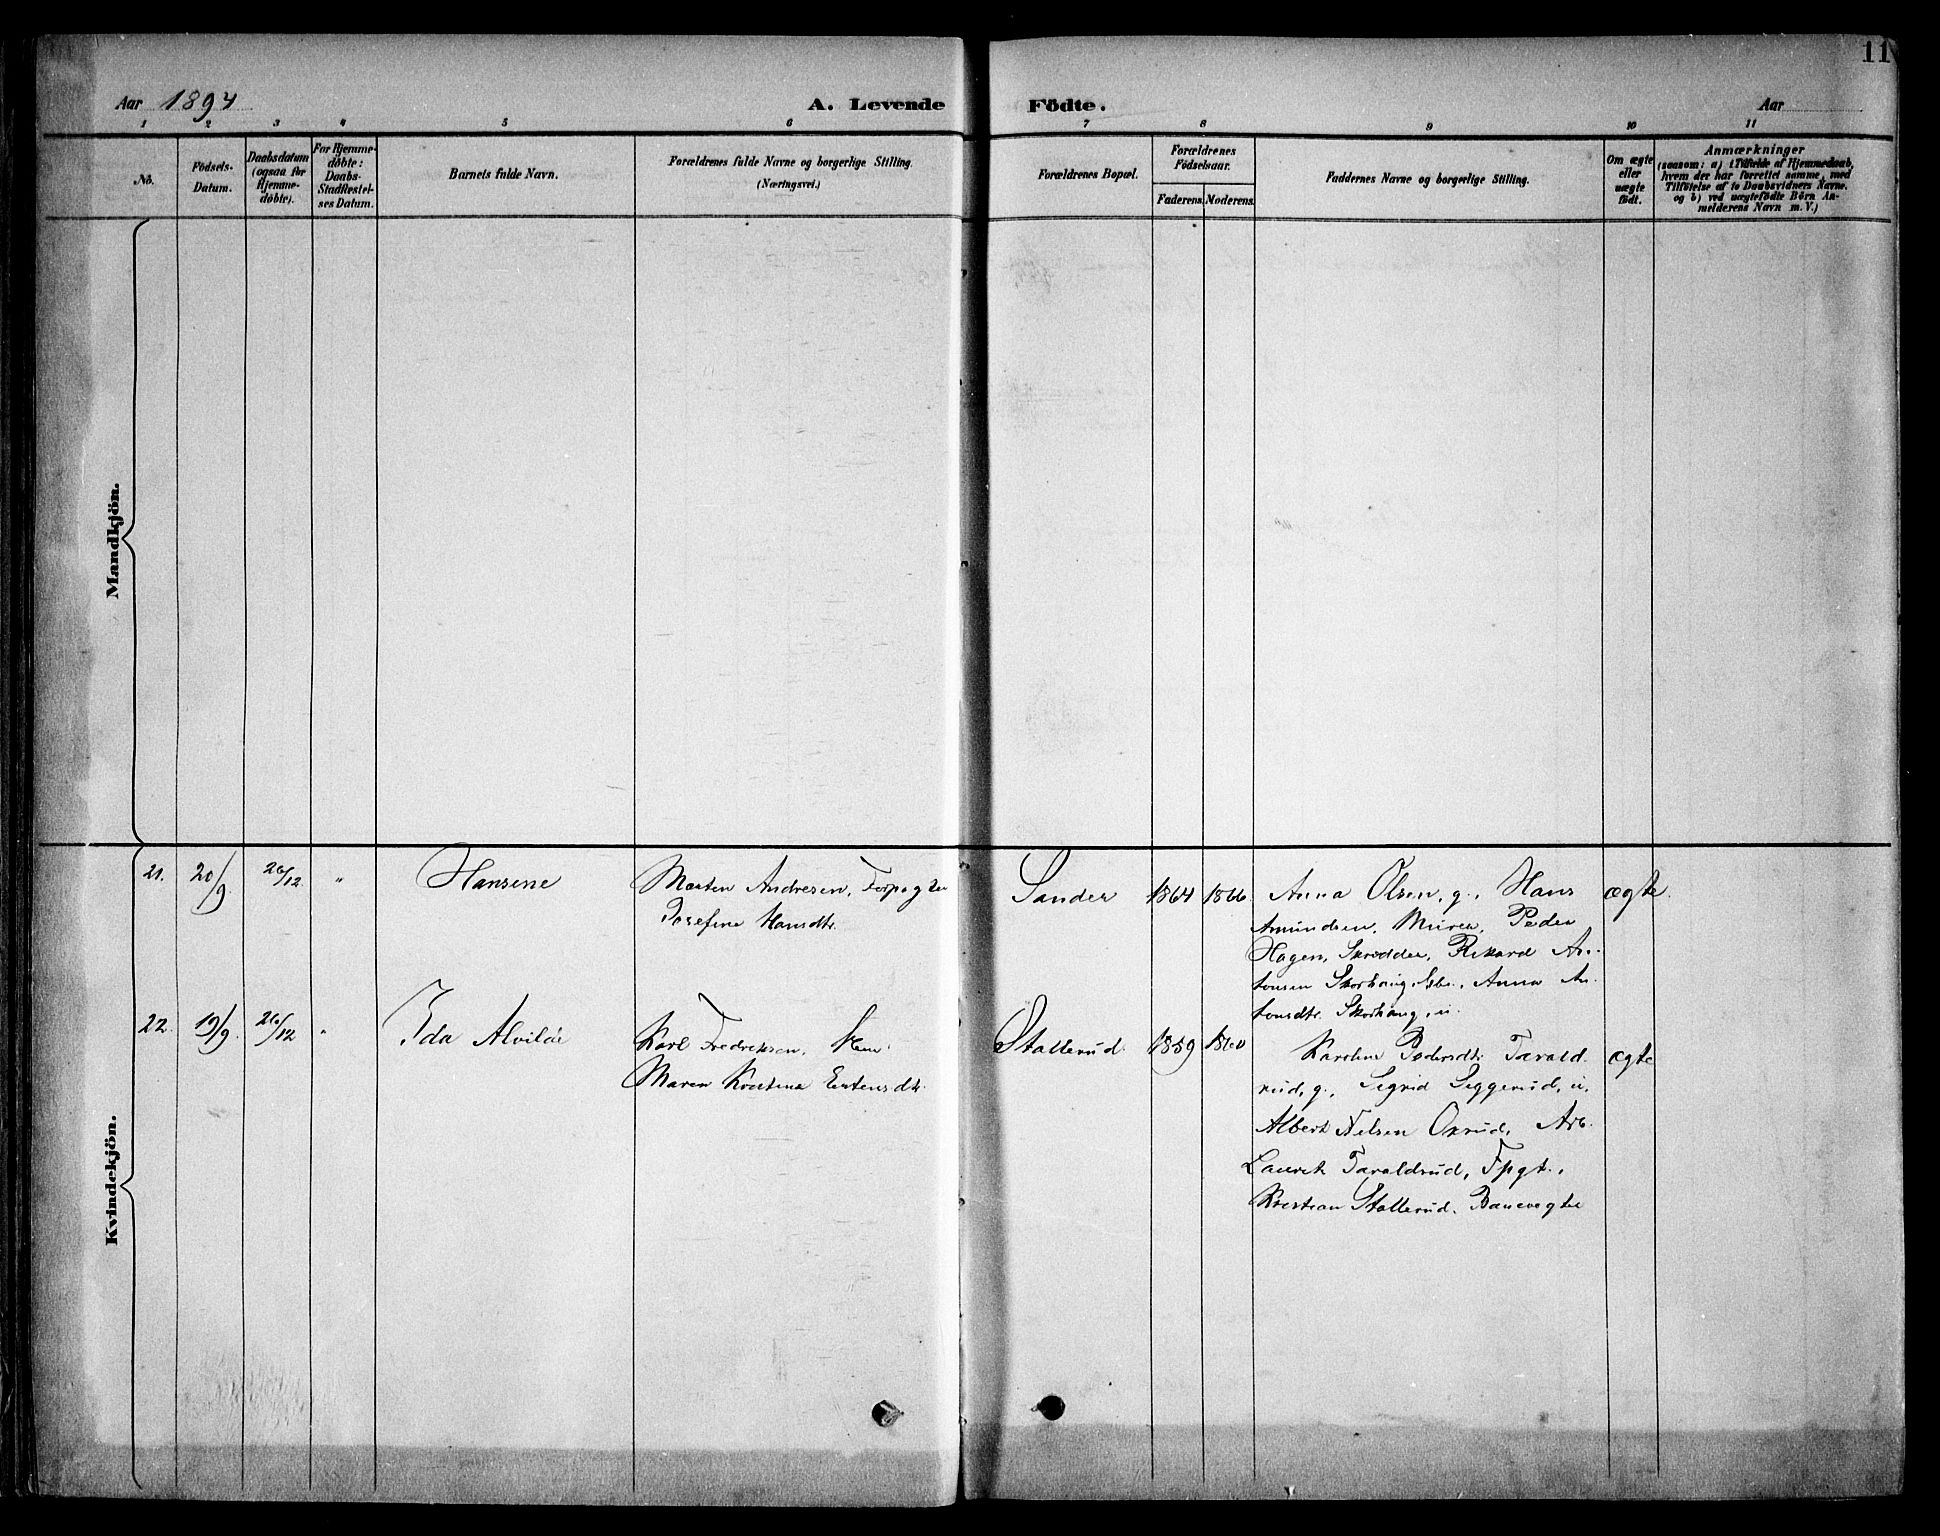 11
Aar 1894 A. Levende Födte. Aar
1 2 3 4 5 6 7 8 9 10 11
No.
Födsels-Datum.
Daabsdatum (ogsaa for Hjemme-döbte).
For Hjemme-döbte: Daabs-Stadfæstel-ses Datum.
Barnets fulde Navn.
Forældrenes fulde Navne og borgerlige Stilling.
(Næringsvei.)
Forældrenes Bopæl.
Forældrenes Födselsaar.
Faderens. Moderens.
Faddernes Navne og borgerlige Stilling.
Om ægte eller uægte födt.
Anmærkninger
(saasom: a) i Tilfælde af Hjemmedaab,
hvem der har forrettet samme, med
Tilföielse af to Daabsvidners Navne,
og b) ved uægtefödte Börn An-
melderens Navn m. V.)
Mandkjön.
Kvindekjön.
21. 20/9 26/12 " Hansene Morten Andresen, Forpagter Sander 1864 1866 Anna Olsen, g., Hans ægte.
Josefine Hansdtr. Amundsen, Murer, Peder
Hagen, Skrædder, Rikard An-
tonsen Skorhaug, Anna An-
tonsdtr. Skorhaug, u.
22. 19/9 26/12 " Ida Alvilde Karl Fredriksen, Stallerud. 1859 1860 Karoline Pedersdtr. Tarald- ægte
Maren Kristina Estensdtr. rud, g., Sigrid Seggerud, u.
Albert Nilsen Oxrud, Arb.
Laurits Taraldrud, Fpgt.,
Kristian Stallerud, Banevogter